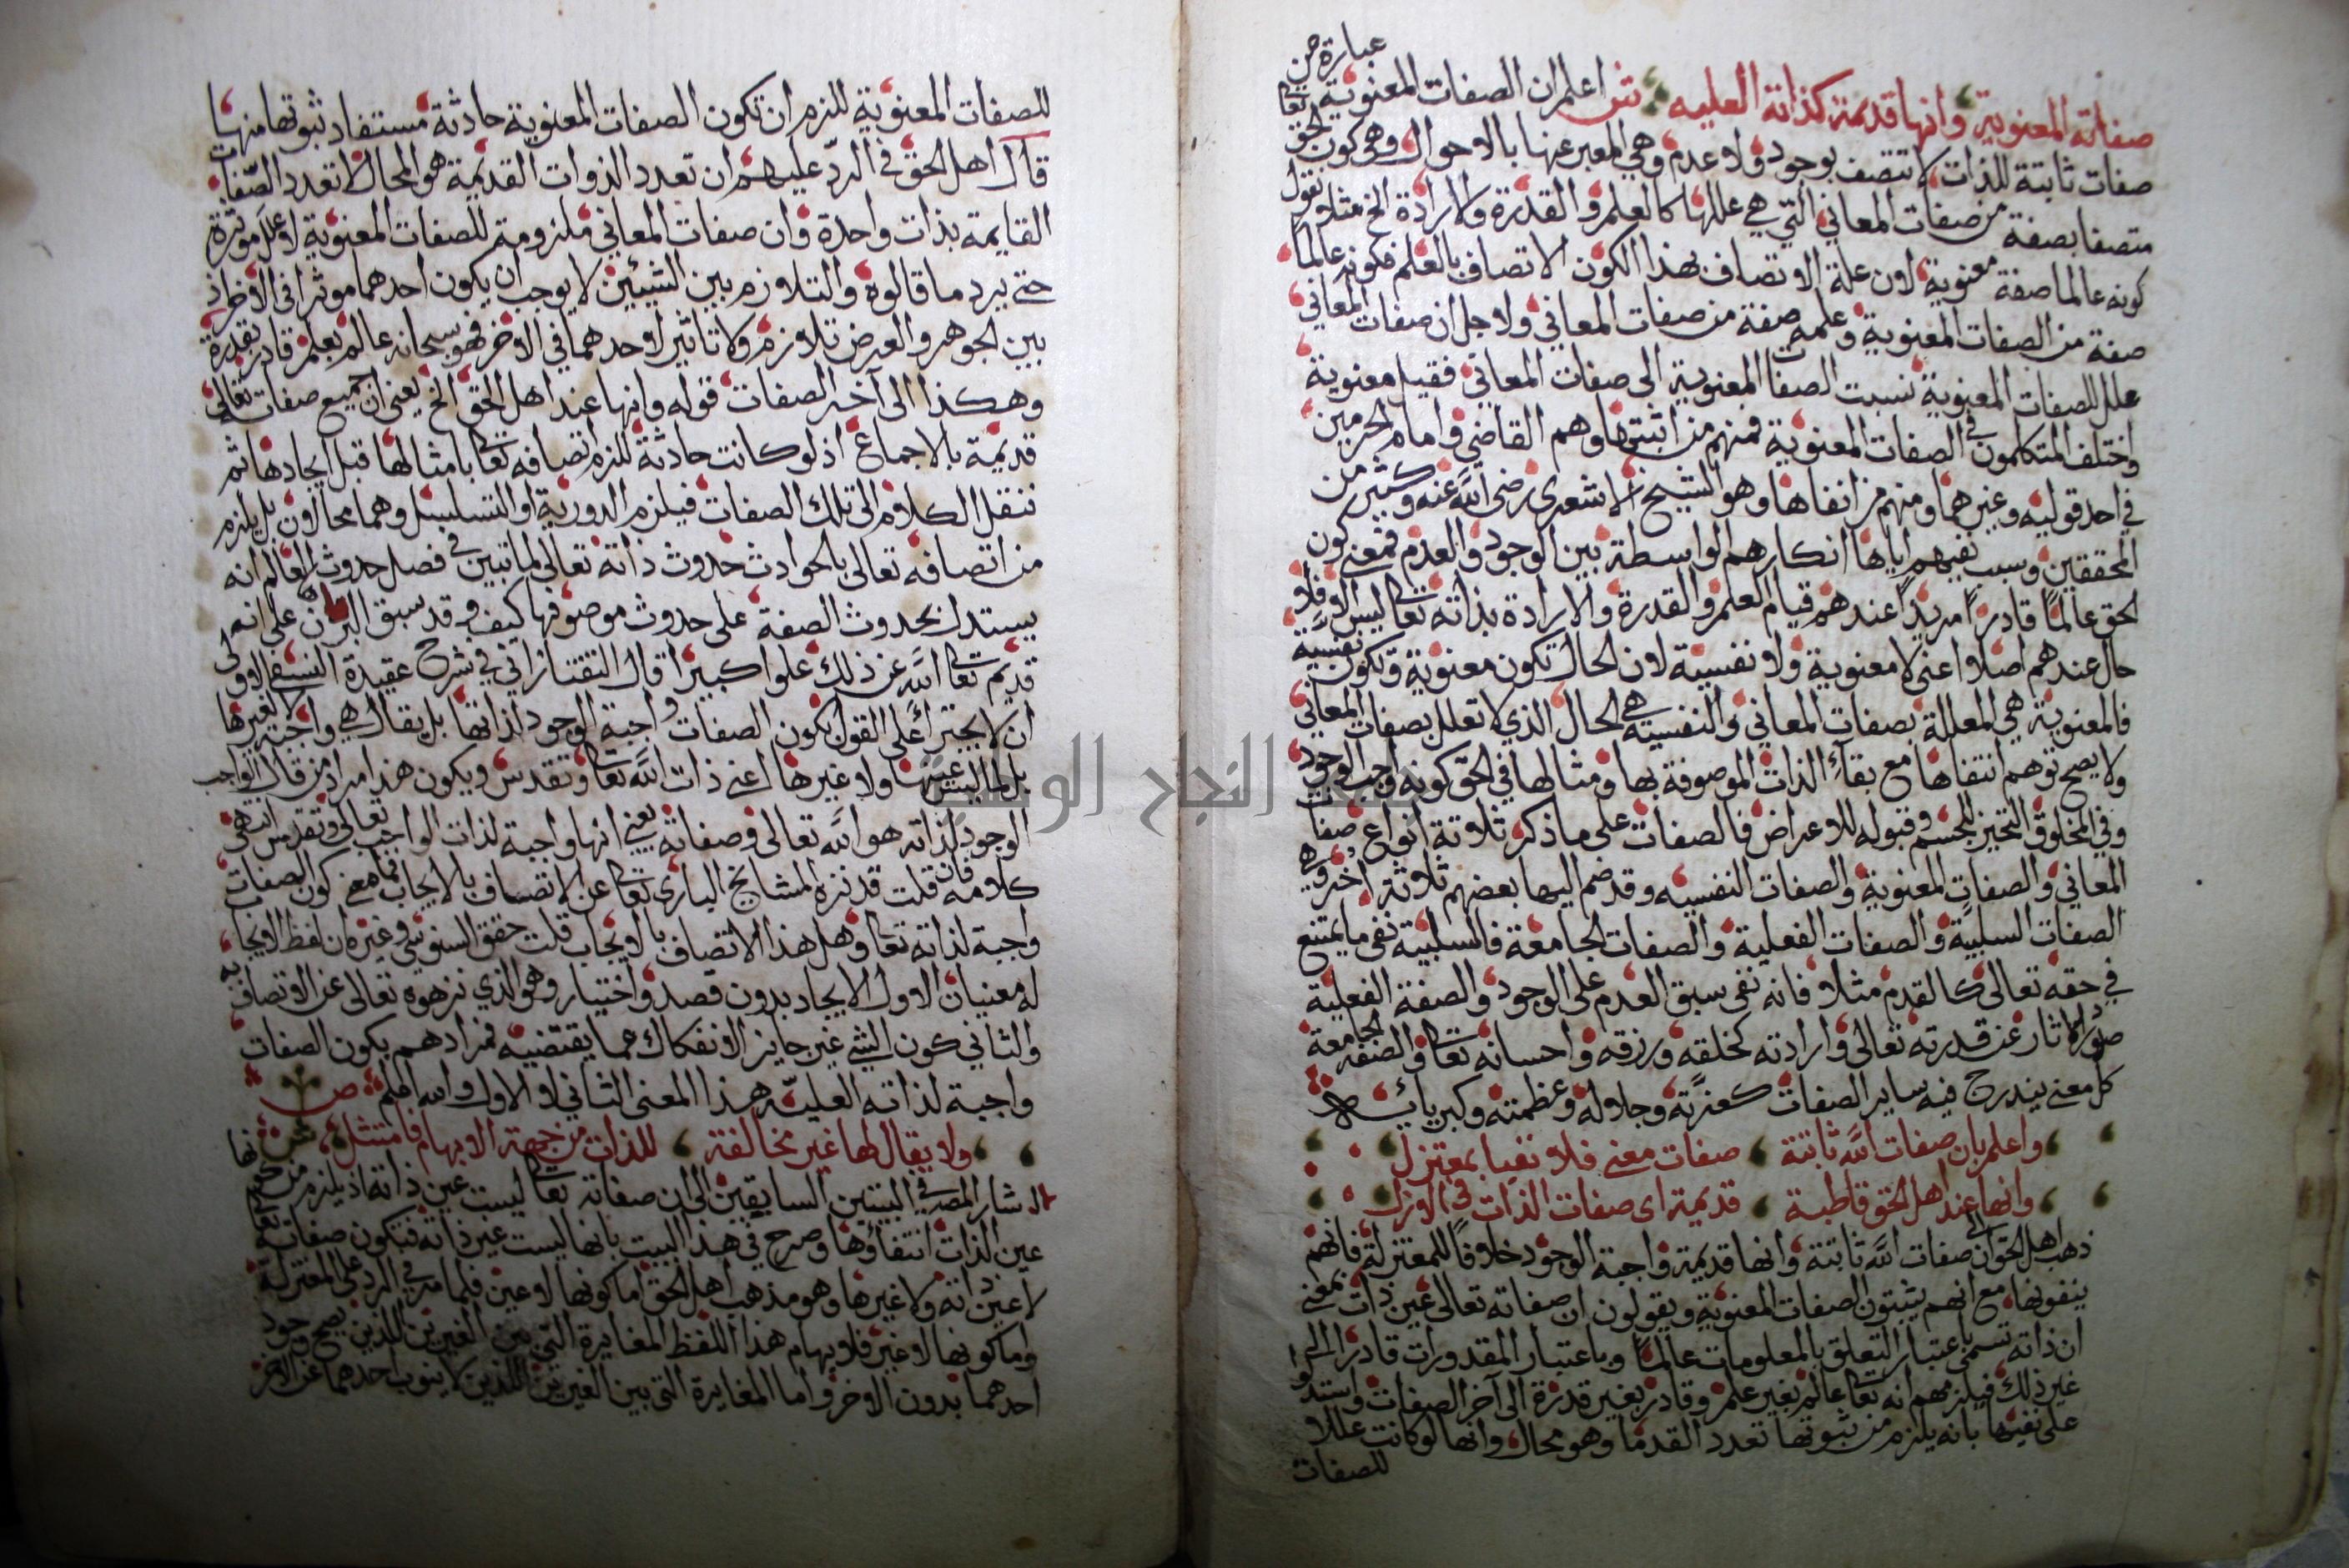 صفاته المعنوية وانها قديمة كذاته العليه ش اعلم ان الصفات المعنوية عبارة عن
صفات ثابتة للذات لا تتصف بوجود ولا عدم وهي المعبر عنها بالاحوال وهي كون الحق تعالى
متصفا بصفة من صفات المعاني التي هي عللها كالعلم والقدرة والارادة الخ مثلا نقول
كونه عالما صفة معنوية لان علة الاتصاف بهذا الكون الاتصاف بالعلم فكونه عالما
صفة من الصفات المعنوية وعلمه صفة من صفات المعاني ولاجل ان صفات المعاني
علل للصفات المعنوية نسبت الصفات المعنوية الى صفات المعاني فقيل معنوية
واختلف المتكلمون في الصفات المعنوية فمنهم من اثبتها وهم القاضي وامام الحرمين
في احد قوليه وغيرهما ومنهم من انفاها وهو الشيخ الاشعري رضي الله عنه وكثير من
المحققين وسبب نفيهم اياها انكارهم الواسطة بين الوجود والعدم فمعنى كون
الحق عالمًا قادرًا مريدًا عندهم قيام العلم والقدرة والارادة بذاته تعالى ليس الا فلا
حال عندهم اصلا اعني لا معنوية ولا نفسية لان الحال تكون معنوية وتكون نفسية
فالمعنوية هي المعللة بصفات المعاني والنفسية هي الحال الذي لا تعلل بصفات المعاني
ولا يصح توهم انتفاها مع بقاء الذات الموصوفة بها ومثالها في الحق كونه واجب الوجود
وفي المخلوق التحيز للجسم وقبوله للاعراض فالصفات على ما ذكر ثلاثة انواع صفات
المعاني والصفات المعنوية والصفات النفسيه وقد ضم اليها بعضهم ثلاثة اخر وهي
الصفات السلبية والصفات الفعلية والصفات الجامعة فالسلبية نفي ما يمتنع
في حقه تعالى كالقدم مثلا فانه نفي سبق العدم على الوجود والصفة الفعلية
صدور الاثار عن قدرته تعالى وارادته كخلقه ورزقه واحسانه تعالى والصفة الجامعة
كل معنى يندرج فيه ساير الصفات كعزته وجلاله وعظمته وكبريائه ص
واعلم بان صفات الله ثابتة صفات معنى فلا نفيا بمعتزل
وانها عند اهل الحق قاطبة قديمة اي صفات الذات في الازل
ذهب اهل الحق الى ان صفات الله ثابتة وانها قديمة واجبة الوجود خلافًا للمعتزلة فانهم
ينفونها مع انهم يثبتون الصفات المعنوية ويقولون ان صفاته تعالى عين ذات بمعنى
ان ذاته تسمى باعتبار التعلق بالمعلومات عالمًا وباعتبار المقدورات قادرا الى
غير ذلك فيلزمهم انه تعالى عالم بغير علم وقادر بغير قدرة الى آخر الصفات واستدلوا
على نفيها بانه يلزم من ثبوتها تعدد القدما وهو محال وانها لو كانت عللا
للصفات
للصفات المعنوية للزم ان تكون الصفات المعنوية حادثة مستفاد ثبوتها منها
قال اهل الحق في الرد عليهم ان تعدد الذوات القديمة هو المحال لا تعدد الصفات
القايمة بذات واحدة وان صفات المعاني ملزومة للصفات المعنوية لا علل موثرة
حتى يرد ما قالوه والتلازم بين الشيئين لا يوجب ان يكون احدهما موثرا في الاخر اذ
بين الجوهر والعرض تلازم ولا تاثير لاحدهما في الاخر فهو سبحانه عالم بعلم قادر بقدرة
وهكذا الى آخر الصفات قوله وانها عند اهل الحق الخ يعني ان جميع صفاته تعالى
قديمة بالاجماع اذ لو كانت حادثة للزم اتصافه تعالى بامثالها قبل ايجادها ثم
ننقل الكلام الى تلك الصفات فيلزم الدورية او التسلسل وهما محالان بل يلزم
من اتصافه تعالى بالحوادث حدوث ذاته تعالى لما تبين في فصل حدوث العالم انه
يستدل بحدوث الصفة على حدوث موصوفها كيف وقد سبق البرهان على انه
قديم تعالى الله عن ذلك علوا كبيرا قال التفتازاني في شرح عقيدة النسفي الاولى
ان لا يجترأ على القول بكون الصفات واجبة الوجود لذاتها بل يقال هي واجبة لا لغيرها
بل لما ليس عينها ولا غيرها اعني ذات الله تعالى وتقدس ويكون هذا مراد من قال الواجب
الوجود لذاته هو الله تعالى وصفاته يعني انها واجبة لذات الواجب تعالى وتقدس انتهى
كلامه فان قلت قد نزه المشايخ الباري تعالى عن الاتصاف بالايجاب فما معنى كون الصفات
واجبة لذاته تعالى وهل هذا الا اتصاف بالايجاب قلت حقق السنوسي وغيره ان لفظ الايجاب
له معنيان الاول الايجاد بدون قصد واختيار وهو الذي نزهوه تعالى عن الاتصاف به
والثاني كون الشي غير جايز الانفكاك عما يقتضيه فمرادهم بكون الصفات
واجبة لذاته العلية هذا المعنى الثاني لا الاول والله اعلم ص
ولا يقال لها غير مخالفة للذات من جهة الابهام فامتثل ش
اشار المصـ في البيتين السابقين الى ان صفاته تعالى ليست عين ذاته اذ يلزم من كونها
عين الذات انتفاؤها وصرح في هذا البيت بانها ليست غير ذاته فتكون صفاته تعالى
لا عين ذاته ولا غيرها وهو مذهب اهل الحق اما كونها لا عين فلما مر في الرد على المعتزلة
واما كونها لا غير فلايهام هذا اللفظ المغايرة التي بين الغيرين اللذين يصح وجود
احدهما بدون الاخر واما المغايرة التي بين الغيرين اللذين لا ينوب احدهما عن الاخر
النجاح